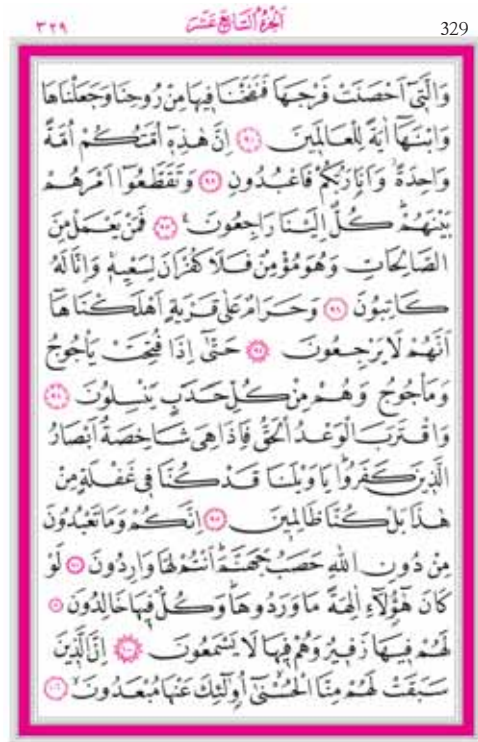 ٣٢٩ اَلْجُزْءُ السَّابِعَ عَشَرَ 329
وَالَّتٖٓي اَحْصَنَتْ فَرْجَهَا فَنَفَخْنَا فٖيهَا مِنْ رُوحِنَا وَجَعَلْنَاهَا
وَابْنَهَٓا اٰيَةً لِلْعَالَمٖينَ ﴿٩١﴾ اِنَّ هٰذِهٖٓ اُمَّتُكُمْ اُمَّةً
وَاحِدَةًؗ وَاَنَا۬ رَبُّكُمْ فَاعْبُدُونِ ﴿٩٢﴾ وَتَقَطَّعُٓوا اَمْرَهُمْ
بَيْنَهُمْؕ كُلٌّ اِلَيْنَا رَاجِعُونَ۟ ﴿٩٣﴾ فَمَنْ يَعْمَلْ مِنَ
الصَّالِحَاتِ وَهُوَ مُؤْمِنٌ فَلَا كُفْرَانَ لِسَعْيِهٖۚ وَاِنَّا لَهُ
كَاتِبُونَ ﴿٩٤﴾ وَحَرَامٌ عَلٰى قَرْيَةٍ اَهْلَكْنَاهَٓا
اَنَّهُمْ لَا يَرْجِعُونَ ﴿٩٥﴾ حَتّٰٓى اِذَا فُتِحَتْ يَأْجُوجُ
وَمَأْجُوجُ وَهُمْ مِنْ كُلِّ حَدَبٍ يَنْسِلُونَ ﴿٩٦﴾
وَاقْتَرَبَ الْوَعْدُ الْحَقُّ فَاِذَا هِيَ شَاخِصَةٌ اَبْصَارُ
الَّذٖينَ كَفَرُواؕ يَا وَيْلَنَا قَدْ كُنَّا فٖي غَفْلَةٍ مِنْ
هٰذَا بَلْ كُنَّا ظَالِمٖينَ ﴿٩٧﴾ اِنَّكُمْ وَمَا تَعْبُدُونَ
مِنْ دُونِ اللّٰهِ حَصَبُ جَهَنَّمَؕ اَنْتُمْ لَهَا وَارِدُونَ ﴿٩٨﴾ لَوْ
كَانَ هٰٓؤُ۬لَٓاءِ اٰلِهَةً مَا وَرَدُوهَاؕ وَكُلٌّ فٖيهَا خَالِدُونَ ﴿٩٩﴾
لَهُمْ فٖيهَا زَفٖيرٌ وَهُمْ فٖيهَا لَا يَسْمَعُونَ ﴿١٠٠﴾ اِنَّ الَّذٖينَ
سَبَقَتْ لَهُمْ مِنَّا الْحُسْنٰٓىۙ اُو۬لٰٓئِكَ عَنْهَا مُبْعَدُونَۙ ﴿١٠١﴾